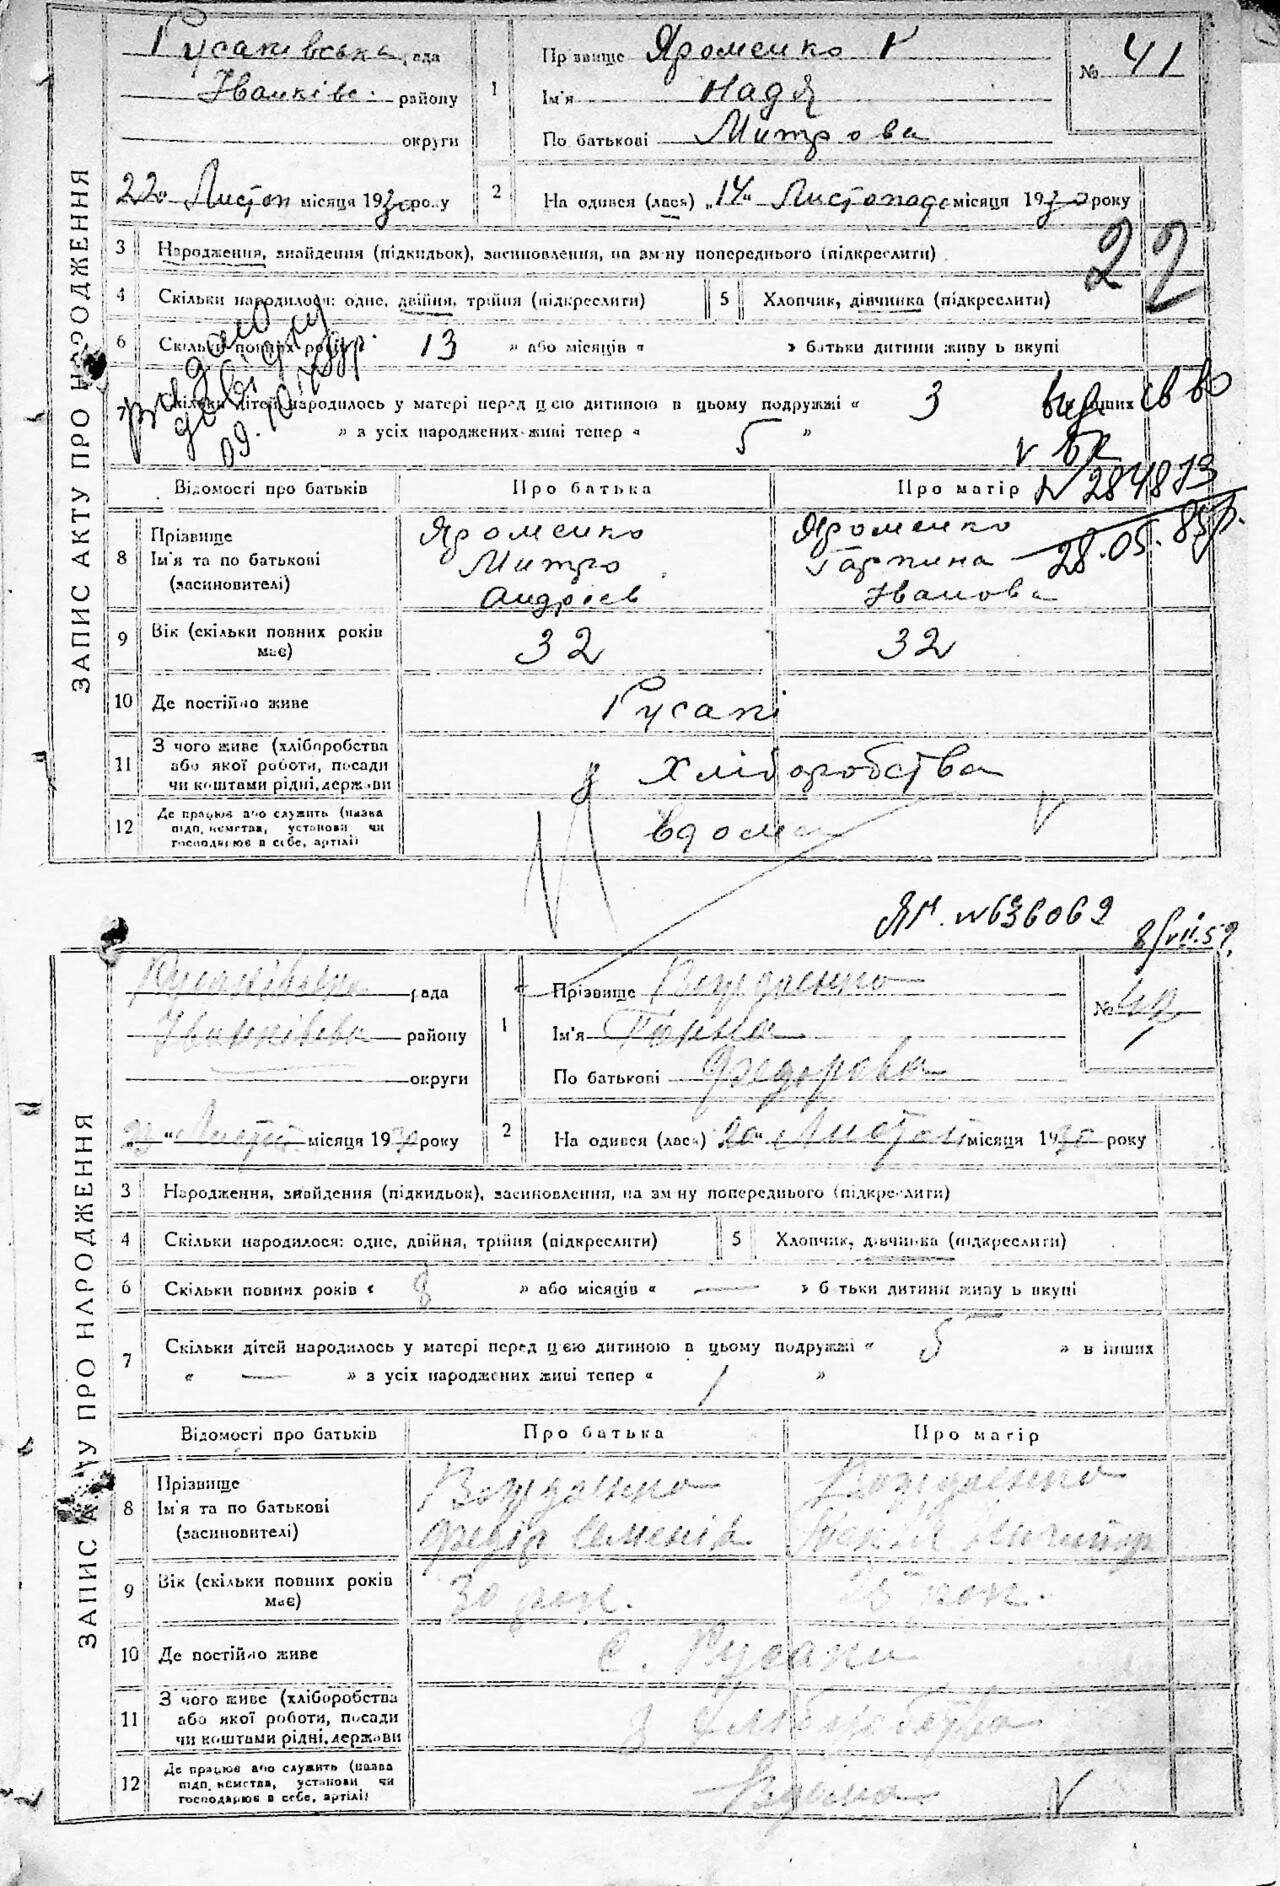 ЗАПИС АКТУ ПРО НАРОДЖЕННЯ
Русаківська рада
Іванківс. району
округи
22 Листоп місяця 1930 року
1
Прізвище Яроменко
Ім'я Надія
По батькові Митрова
№ 41
2
На одився (лася) „14“ Листопада місяця 1930 року
22
3 Народження, знайдення (підкидьок), засиновлення, на зм ну попереднього (підкреслити)
4 Скільки народилося: одне, двійня, трійня (підкреслити) 5 Хлопчик, дівчинка (підкреслити)
6 Скільки повних років 13 » або місяців « » батьки дитини живу ь вкупі
7 Скільки дітей народилось у матері перед цією дитиною в цьому подружжі « 3 інших
» з усіх народжених живі тепер « 5 »
видано
довідку
09.10.
вид. св во
N 284873
28.05.85р.
Відомості про батьків Про батька Про матір
8 Прізвище Яроменко Яроменко
Ім'я та по батькові Митро Гарпина
(засиновителі) Андрієв Іванова
9 Вік (скільки повних років має) 32 32
10 Де постійно живе Русакі
11 З чого живе (хліборобства
або якої роботи, посади
чи коштами рідні, держави
з Хліборобства
12 Де працює або служить (назва
підп, иємства, установи чи
господарює в себе, артілі)
вдома
ЯГ. N 636062
8/VII.59
ЗАПИС АКТУ ПРО НАРОДЖЕННЯ
Русаківська рада
Іванківсва району
округи
„23“ Листоп місяця 1930 року
1
Прізвище
Ім'я Ганна
По батькові Федорова
№ 42
2
На одився (лася) „20“ Листоп місяця 1930 року
3 Народження, знайдення (підкидьок), засиновлення, на зм ну попереднього (підкреслити)
4 Скільки народилося: одне, двійня, трійня (підкреслити) 5 Хлопчик, дівчинка (підкреслити)
6 Скільки повних років « 8 » або місяців « — » б тьки дитини живу ь вкупі
7 Скільки дітей народилось у матері перед цією дитиною в цьому подружжі « 5 » в інших
« — » з усіх народжених живі тепер « 1 »
Відомості про батьків Про батька Про матір
8 Прізвище
Ім'я та по батькові Федір Семенів
(засиновителі)
9 Вік (скільки повних років має) 30 рок. 25 рок.
10 Де постійно живе с. Русаки
11 З чого живе (хліборобства
або якої роботи, посади
чи коштами рідні, держави
з хліборобства
12 Де працює або служить (назва
підп, иємства, установи чи
господарює в себе, артілі)
Вдома